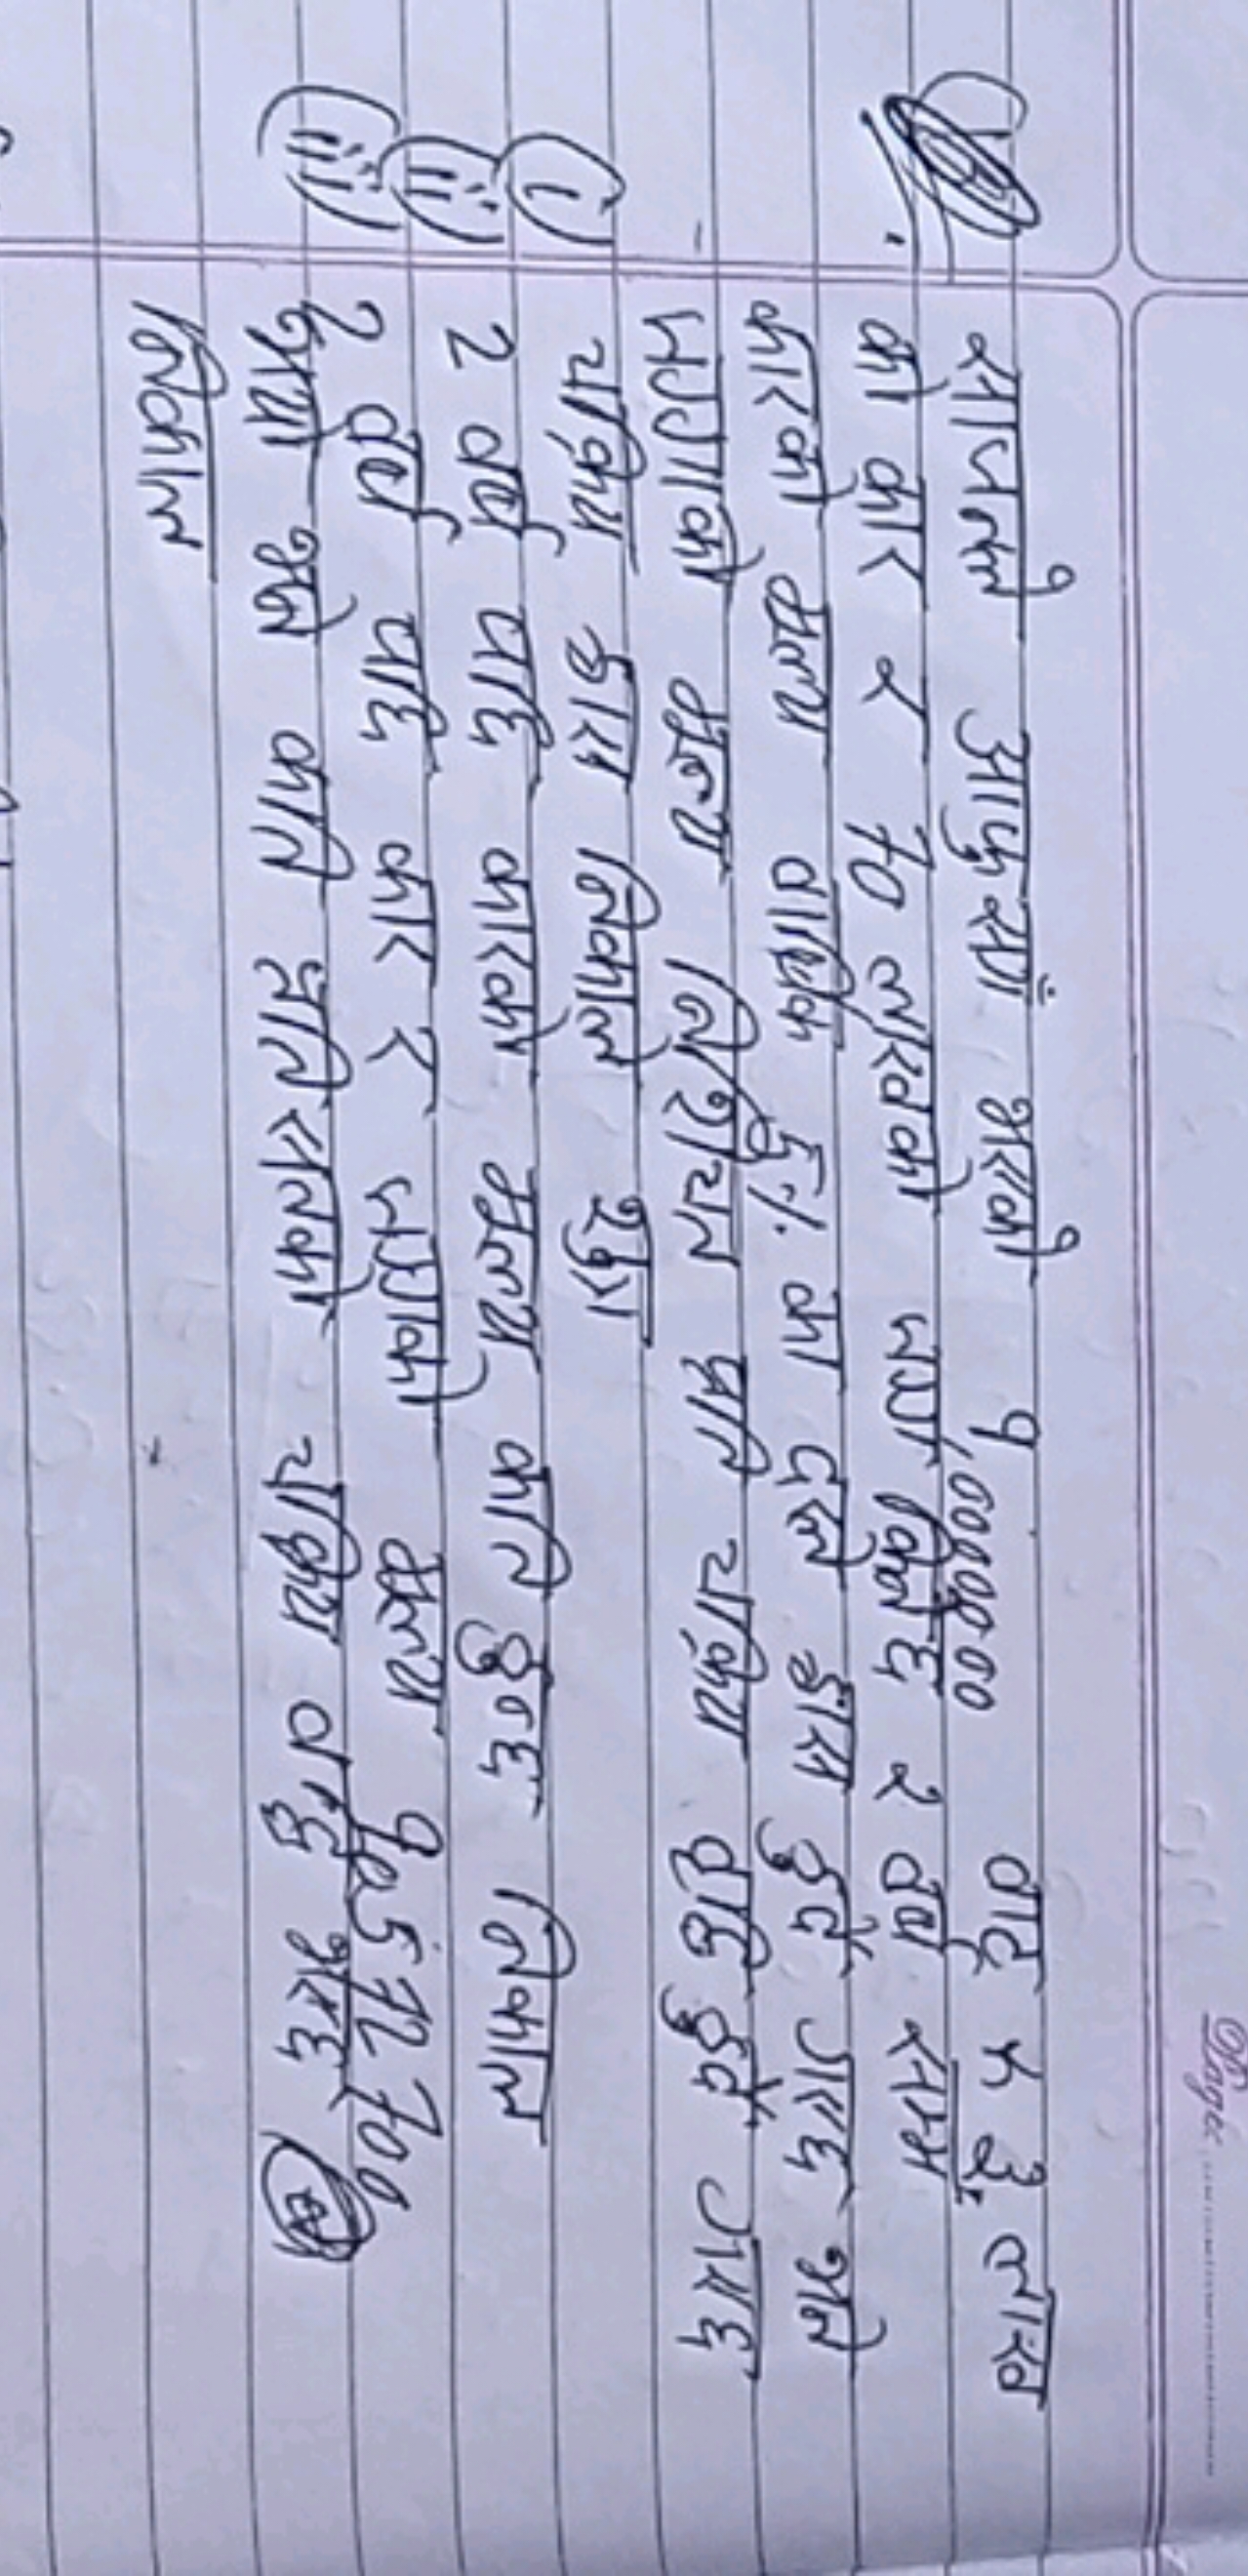 सापनले आफूसँग भएको १,००००००० बाट रू ३० लाख
को कार र ७० लाखको जग्गा किनेछ २ वर्ष सम्म
कारको मूल्य वार्षिक ५% का दरले ह्रास हुदै गएछ भने
जग्गाको मूल्य प्रति चक्रिय वृद्धि हुदै गएछ
(i) चक्रिय ह्रास निकाल्ने सूत्र
(ii) 2 वर्ष पछि कारको मूल्य कति हुन्छ निकाल
(iii) 2 वर्ष पछि कार र जग्गाको मूल्य
भयो भने कति प्रतिशतको चक्रिय भएछ
निकाल
Page